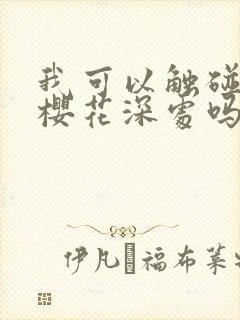 我可以触碰
樱花深处吗
伊凡 福布莱